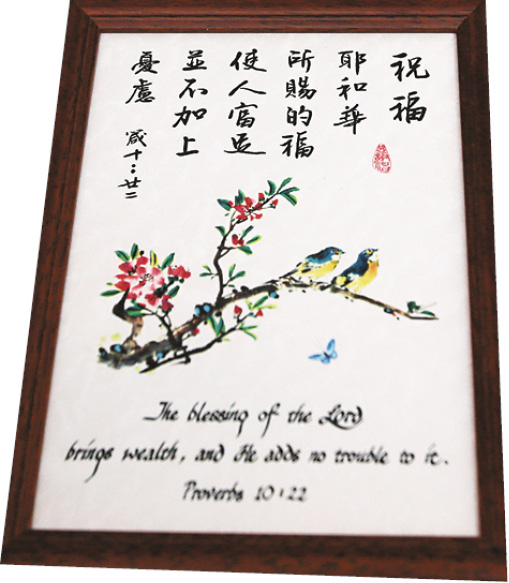 祝福
耶和華
所賜的福
使人富足
並不加上
憂慮 箴十:廿二
The blessing of the Lord
brings wealth, and He adds no trouble to it.
Proverbs 10:22